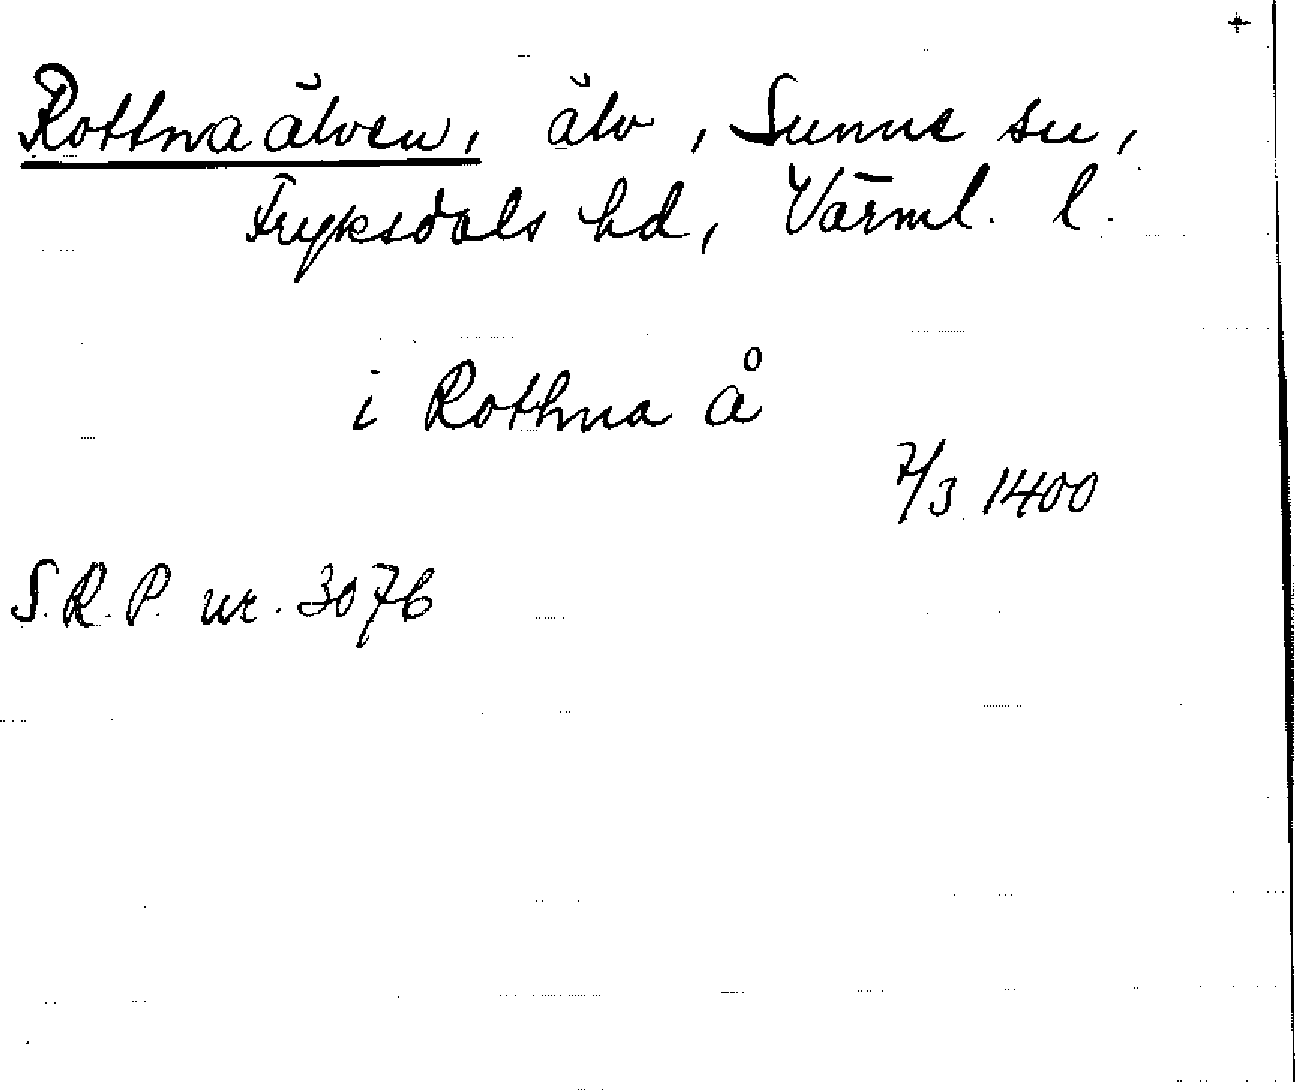 Rottnaälven, älv, Sunne sn,
Fryksdals hd, Värml. l.
i Rothna å
7/3 1400
S.R.P. nr. 3076